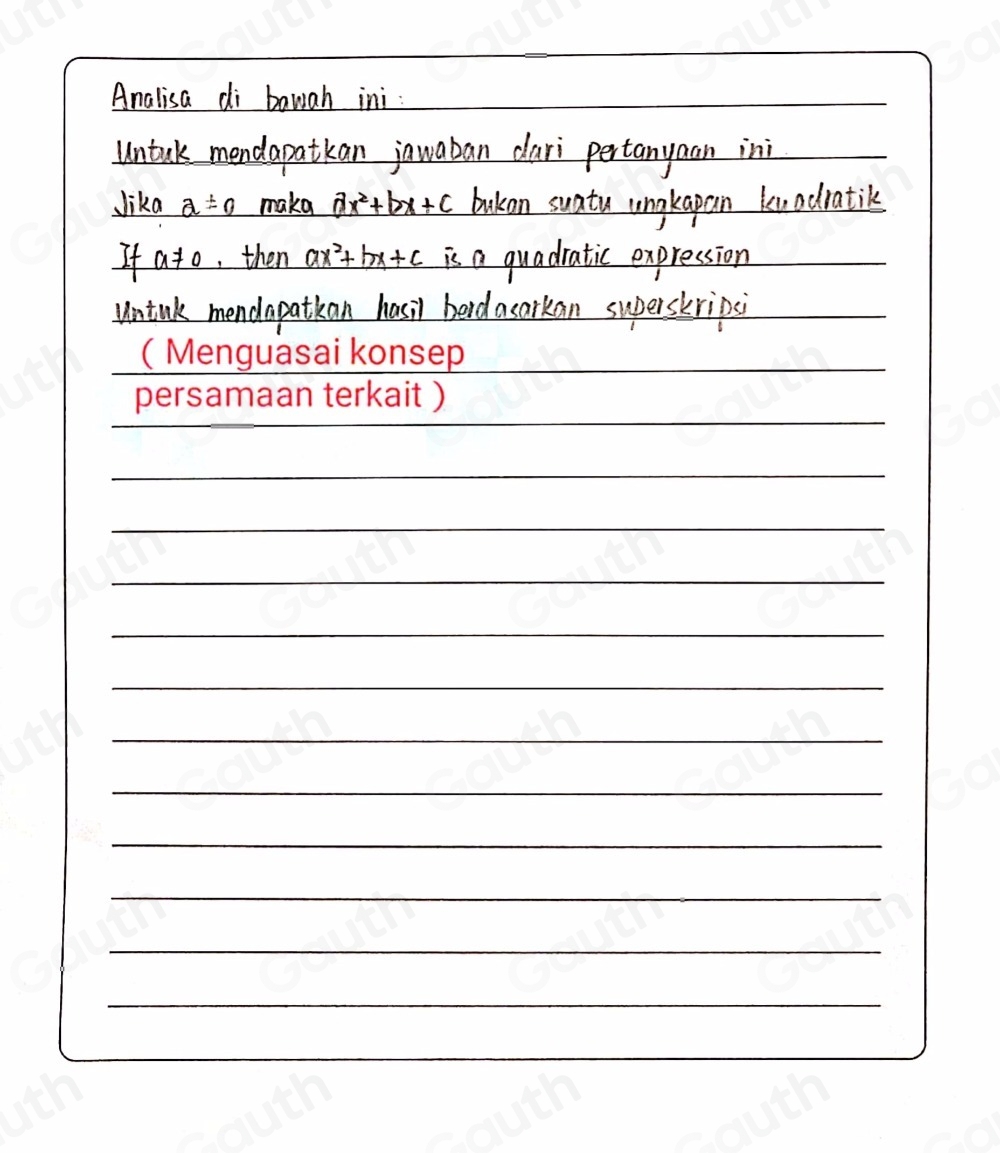 Analisa di bawah ini :
Untuk mendapatkan jawaban dari pertanyaan ini.
Jika a ≠ 0 maka ax²+bx+c bukan suatu ungkapan kuadratik
If a≠0, then ax²+bx+c is a quadratic expression
Untuk mendapatkan hasil berdasarkan superskripsi
( Menguasai konsep
persamaan terkait )